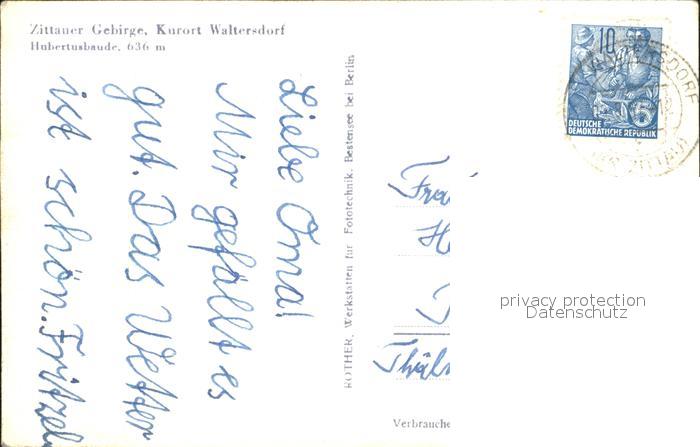 Zittauer Gebirge, Kurort Waltersdorf
Hubertusbaude, 636 m
Liebe Oma!
Mir gefällt es
gut. Das Wetter
ist schön. Fritzel
ROTHER, Werkstätten für Fototechnik, Bestensee bei Berlin
10
5
DEUTSCHE
DEMOKRATISCHE REPUBLIK
privacy protection
Datenschutz
Verbrauche